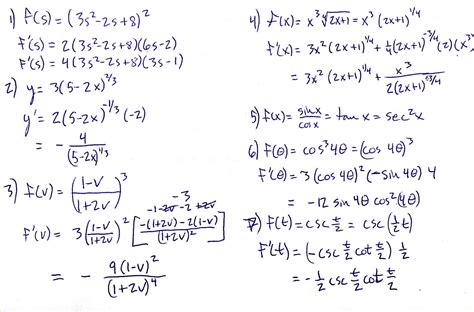 1) f(s) = (3s²-2s+8)²
f'(s) = 2(3s²-2s+8)(6s-2)
f'(s) = 4(3s²-2s+8)(3s-1)
2) y = 3(5-2x)^2/3
y' = 2(5-2x)^-1/3 (-2)
= - 4/(5-2x)^1/3
3) f(v) = ((1-v)/(1+2v))³
-3
-1-2v-2+2v
f'(v) = 3((1-v)/(1+2v))² [(-(1+2v)-2(1-v))/(1+2v)²]
= - 9(1-v)²/(1+2v)⁴
4) f(x) = x³ ∜(2x+1) = x³(2x+1)^1/4
f'(x) = 3x²(2x+1)^1/4 + 1/4(2x+1)^-3/4 (2)(x³
= 3x²(2x+1)^1/4 + x³/(2(2x+1)^3/4)
5) f(x) = sinx/cosx = tan x = sec²x
6) f(θ) = cos³4θ = (cos 4θ)³
f'(θ) = 3(cos 4θ)²(-sin 4θ) 4
= -12 sin 4θ cos²(4θ)
7) f(t) = csc t/2 = csc (1/2 t)
f'(t) = (-csc t/2 cot t/2) 1/2
= -1/2 csc t/2 cot t/2